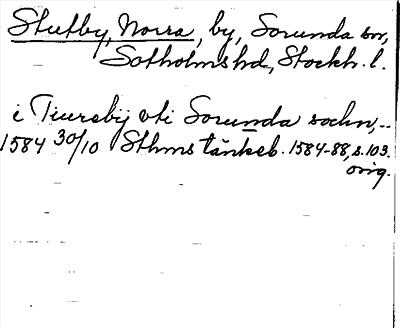 Stutby, Norra, by, Sorunda sn,
Sotholms hd, Stockh. l.
i Tiurebÿ vti Sorunda sochn,--
1584 30/10 Sthms tänkeb. 1584-88, s. 103.
orig.